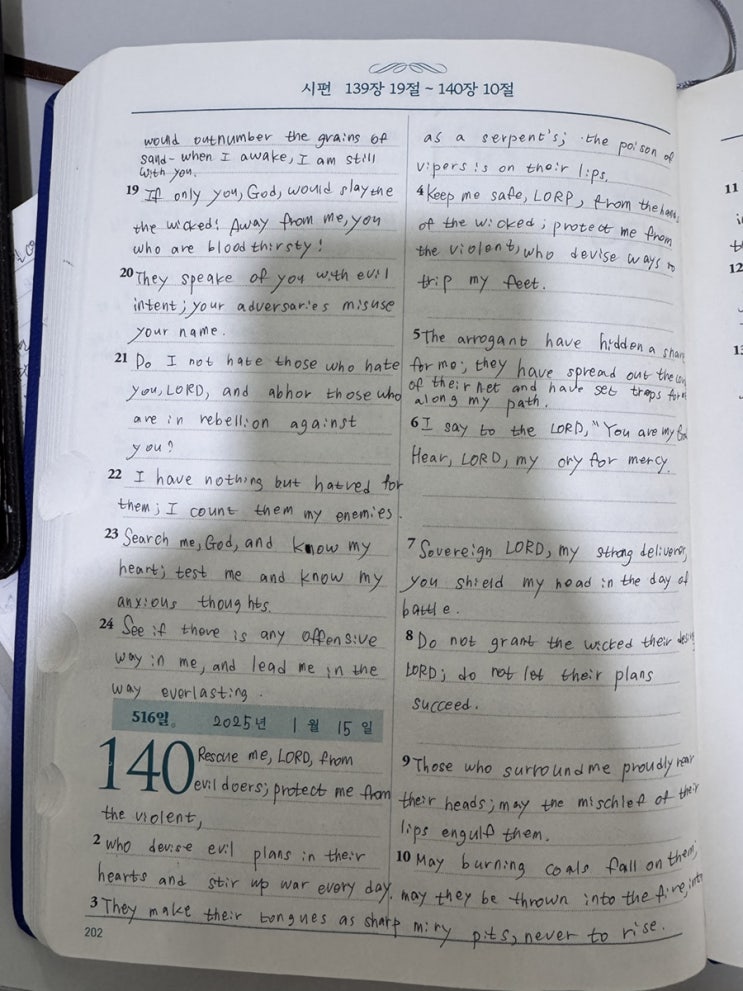 시편 139장 19절 ~ 140장 10절
would outnumber the grains of
sand - when I awake, I am still
with you.
19 If only you, God, would slay the
the wicked! Away from me, you
who are bloodthirsty!
20 They speake of you with evil
intent; your adversaries misuse
your name.
21 Do I not hate those who hate
you, LORD, and abhor those who
are in rebellion against
you?
22 I have nothing but hatred for
them; I count them my enemies.
23 Search me, God, and know my
heart; test me and know my
anxious thoughts.
24 See if there is any offensive
way in me, and lead me in the
way everlasting.
516일. 2025년 1월 15일
140 Rescue me, LORD, from
evil doers; protect me from
the violent,
2 who devise evil plans in their
hearts and stir up war every day.
3 They make their tongues as sharp
202
as a serpent's; the poison of
vipers is on their lips.
4 Keep me safe, LORD, from the
of the wicked; protect me from
the violent, who devise ways to
trip my feet.
5 The arrogant have hidden a snare
for me; they have spread out the
of their net and have set traps for
along my path.
6 I say to the LORD, "You are my God
Hear, LORD, my cry for mercy.
7 Sovereign LORD, my strong deliverer,
you shield my head in the day of
battle.
8 Do not grant the wicked their
LORD; do not let their plans
succeed.
9 Those who surround me proudly rear
their heads; may the mischief of their
lips engulf them.
10 May burning coals fall on them;
may they be thrown into the fire, into
miry pits, never to rise.
11
12